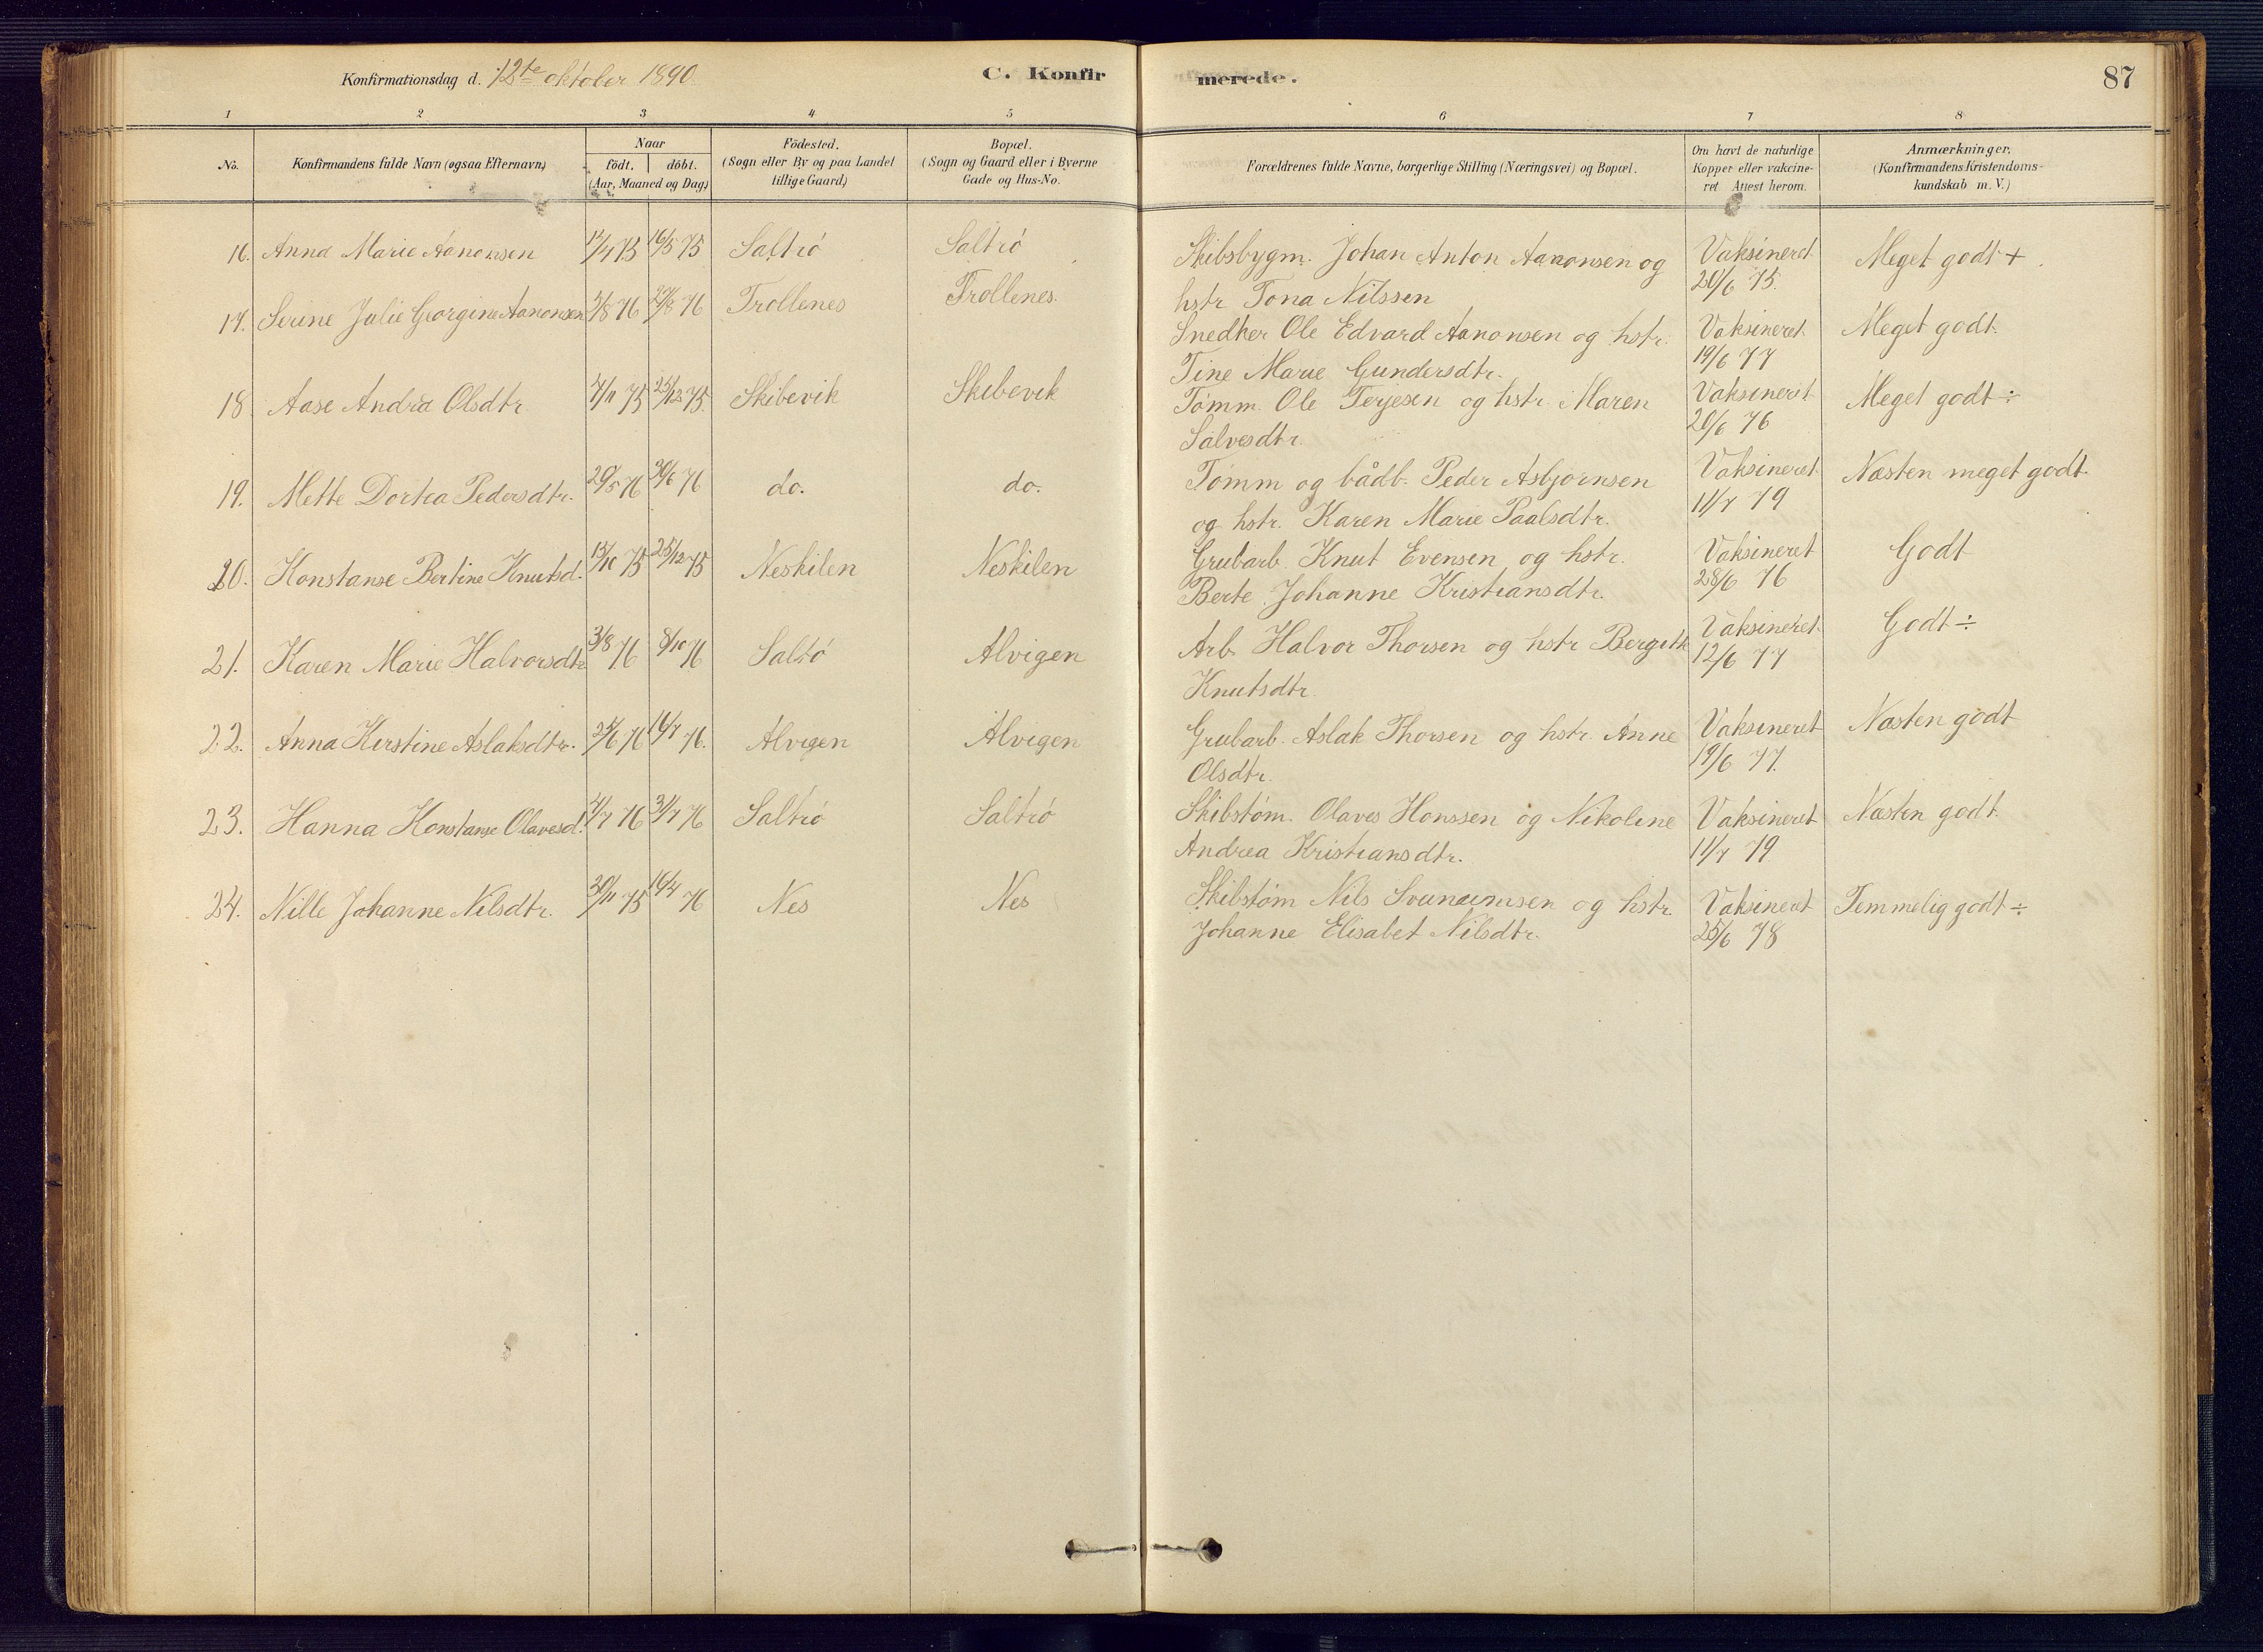 Konfirmationsdag d. 12te oktober 1890. C. Konfirmerede. 87
1 2 3 4 5 6 7 8
No. Konfirmandens fulde Navn (ogsaa Efternavn) Naar födt. döbt. (Aar, Maaned og Dag) Födested. (Sogn eller By og paa Landet tillige Gaard) Bopæl. (Sogn og Gaard eller i Byerne Gade og Hus-No. Forældrenes fulde Navne, borgerlige Stilling (Næringsvei) og Bopæl. Om havt de naturlige Kopper eller vakcineret Attest herom. Anmærkninger. (Konfirmandens Kristendomskundskab m. V.)
16. Anna Marie Aanonsen 75 16/5 75 Saltrö Saltrö Skibsbygm. Johan Anton Aanonsen og Vaksineret Meget godt +
hstr Tona Nilssen 20/6 75.
17. Serine Julie Georgine Aanonsen 76 76 Trollenes Trollenes. Snedker Ole Edvard Aanonsen og hstr. Vaksineret Meget godt.
Tine Marie Gundersdtr. 19/6 77
18 Aase Andrea Olsdtr 75 25/12 75. Skibevik Skibevik Tömm. Ole Terjesen og hstr. Maren Vaksineret Meget godt ÷
Salvesdtr. 20/6 76
19. Mette Dortea Pedersdtr. 29/5 76 30/6 76 do. do. Tömm og bådb. Peder Asbjornsen Vaksineret Næsten meget godt
og hstr. Karen Marie Paalsdtr. 11/7 79
20. Konstanse Bertine Knutsd. 15/10 75 25/12 75 Neskilen Neskilen Grubarb. Knut Evensen og hstr. Vaksineret Godt
Berte Johanne Kristiansdtr. 28/6 76
21. Karen Marie Halvorsdtr 3/8 76 8/10 76 Saltrö Alvigen Arb. Halvor Thorsen og hstr Vaksineret Godt ÷
Knutsdtr. 12/6 77
22. Anna Kirstine Aslaksdtr. 76 16/7 76. Alvigen Alvigen Grubarb. Aslak Thorsen og hstr. Anne Vaksineret Næsten godt
Olsdtr. 19/6 77.
23. Hanna Konstanse Olavesd. 76 76 Saltrö Saltrö Skibstöm. Olaves Honssen og Nikoline Vaksineret Næsten godt.
Andrea Kristiansdtr. 11/7 79
24. Nille Johanne Nilsdtr. 30/11 75 16/4 76 Nes Nes Skibstöm Nils og hstr Vaksineret Temmelig godt ÷
Johanne Elisabet Nilsdtr. 25/6 78